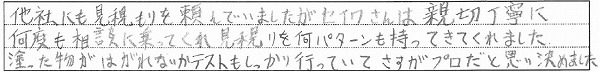 他社にも見積もりを頼んでいましたがセイワさんは親切丁寧に
何度も相談に乗ってくれ見積りを何パターンも持ってきてくれました
塗った物がはがれないかテストもしっかり行っていてさすがプロだと思い決めました